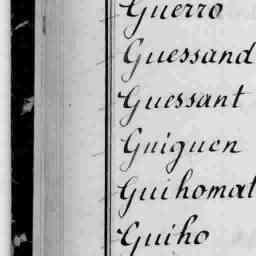 Guerro
Guessand
Guessant
Guiguen
Guihomat
Guiho